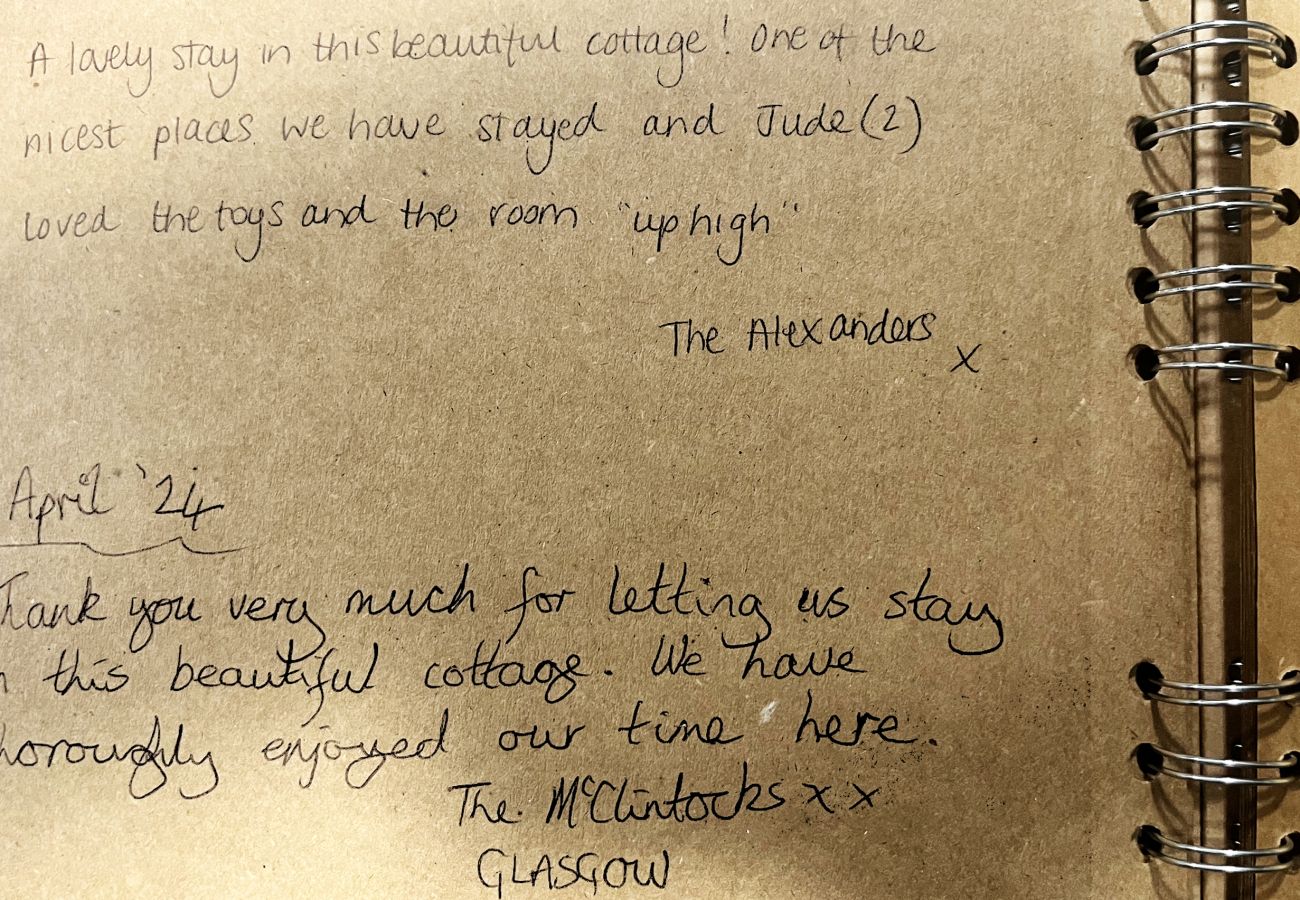 A lovely stay in this beautiful cottage! One of the
nicest places we have stayed and Jude (2)
loved the toys and the room "up high"
The Alexanders
x
April '24
Thank you very much for letting us stay
n this beautiful cottage. We have
horoughly enjoyed our time here.
The McClintocks x x
GLASGOW